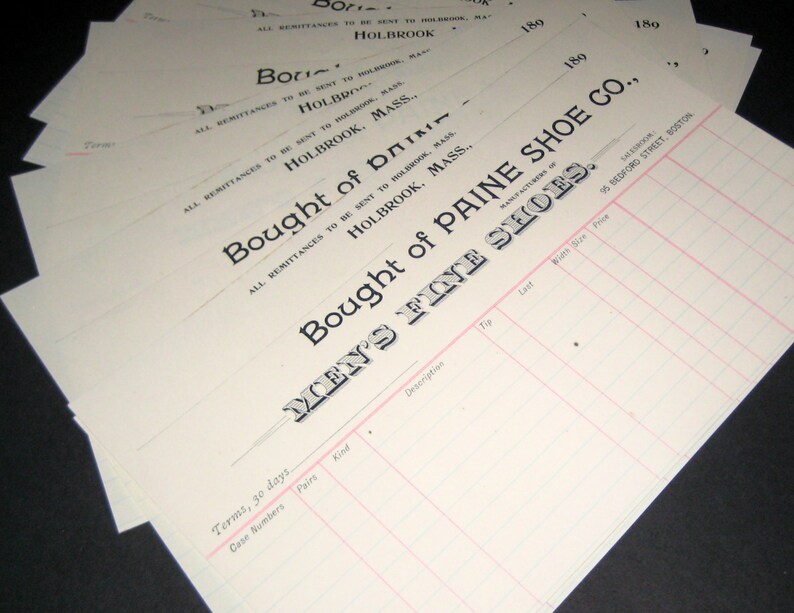 BOUG
ALL REMITTANCES TO BE SENT TO HOLBROOK, MASS.
HOLBROOK
189
Bough
ALL REMITTANCES TO BE SENT TO HOLBROOK, MAS
HOLBRO
189
Terms
ALL REMITTANCES TO BE SENT TO HOLBROOK, MASS.
HOLBROOK, MASS.,
189
Bought of PAIN
ALL REMITTANCES TO BE SENT TO HOLBROOK, MASS.
HOLBROOK, MASS.,
189
Bought of PAINE SHOE CO.,
MANUFACTURERS OF
MEN'S FINE SHOES.
SALESROOM:
95 BEDFORD STREET, BOSTON.
Terms, 30 days
Case Numbers Pairs Kind Description Tip Last Width Size Price